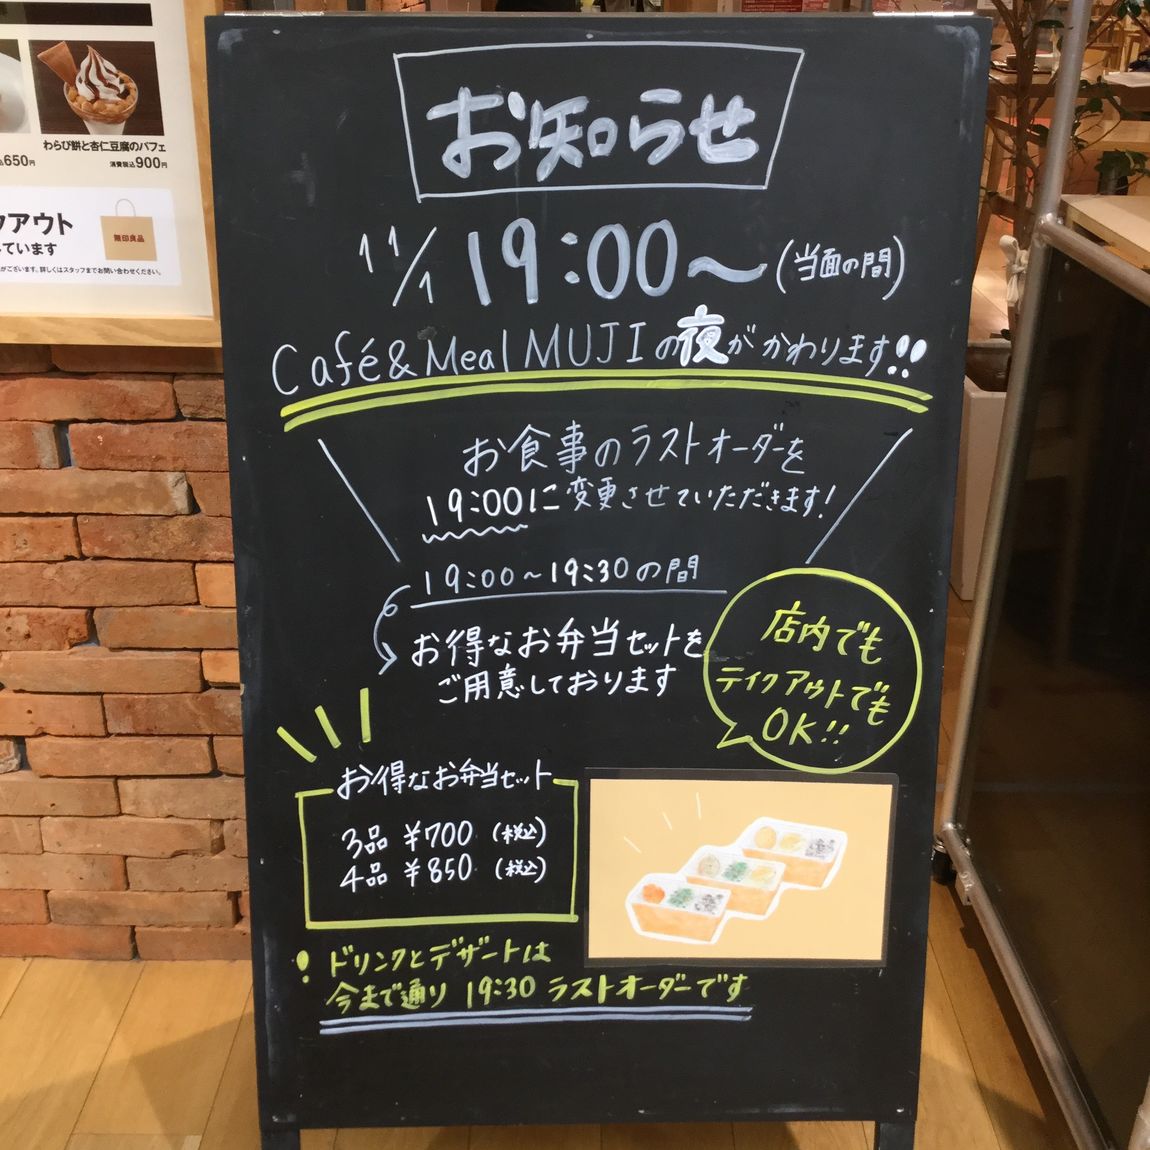 わらび餅と杏仁豆腐のパフェ
650円
消費税込900円
クアウト
ています
無印良品
がございます。詳しくはスタッフまでお問い合わせください。
お知らせ
11/1 19:00〜(当面の間)
Café&Meal MUJIの夜がかわります!!
お食事のラストオーダーを
19:00に変更させていただきます!
19:00〜19:30の間
お得なお弁当セットを
ご用意しております
店内でも
テイクアウトでも
OK!!
お得なお弁当セット
3品 ¥700 (税込)
4品 ¥850 (税込)
! ドリンクとデザートは
今まで通り 19:30 ラストオーダーです